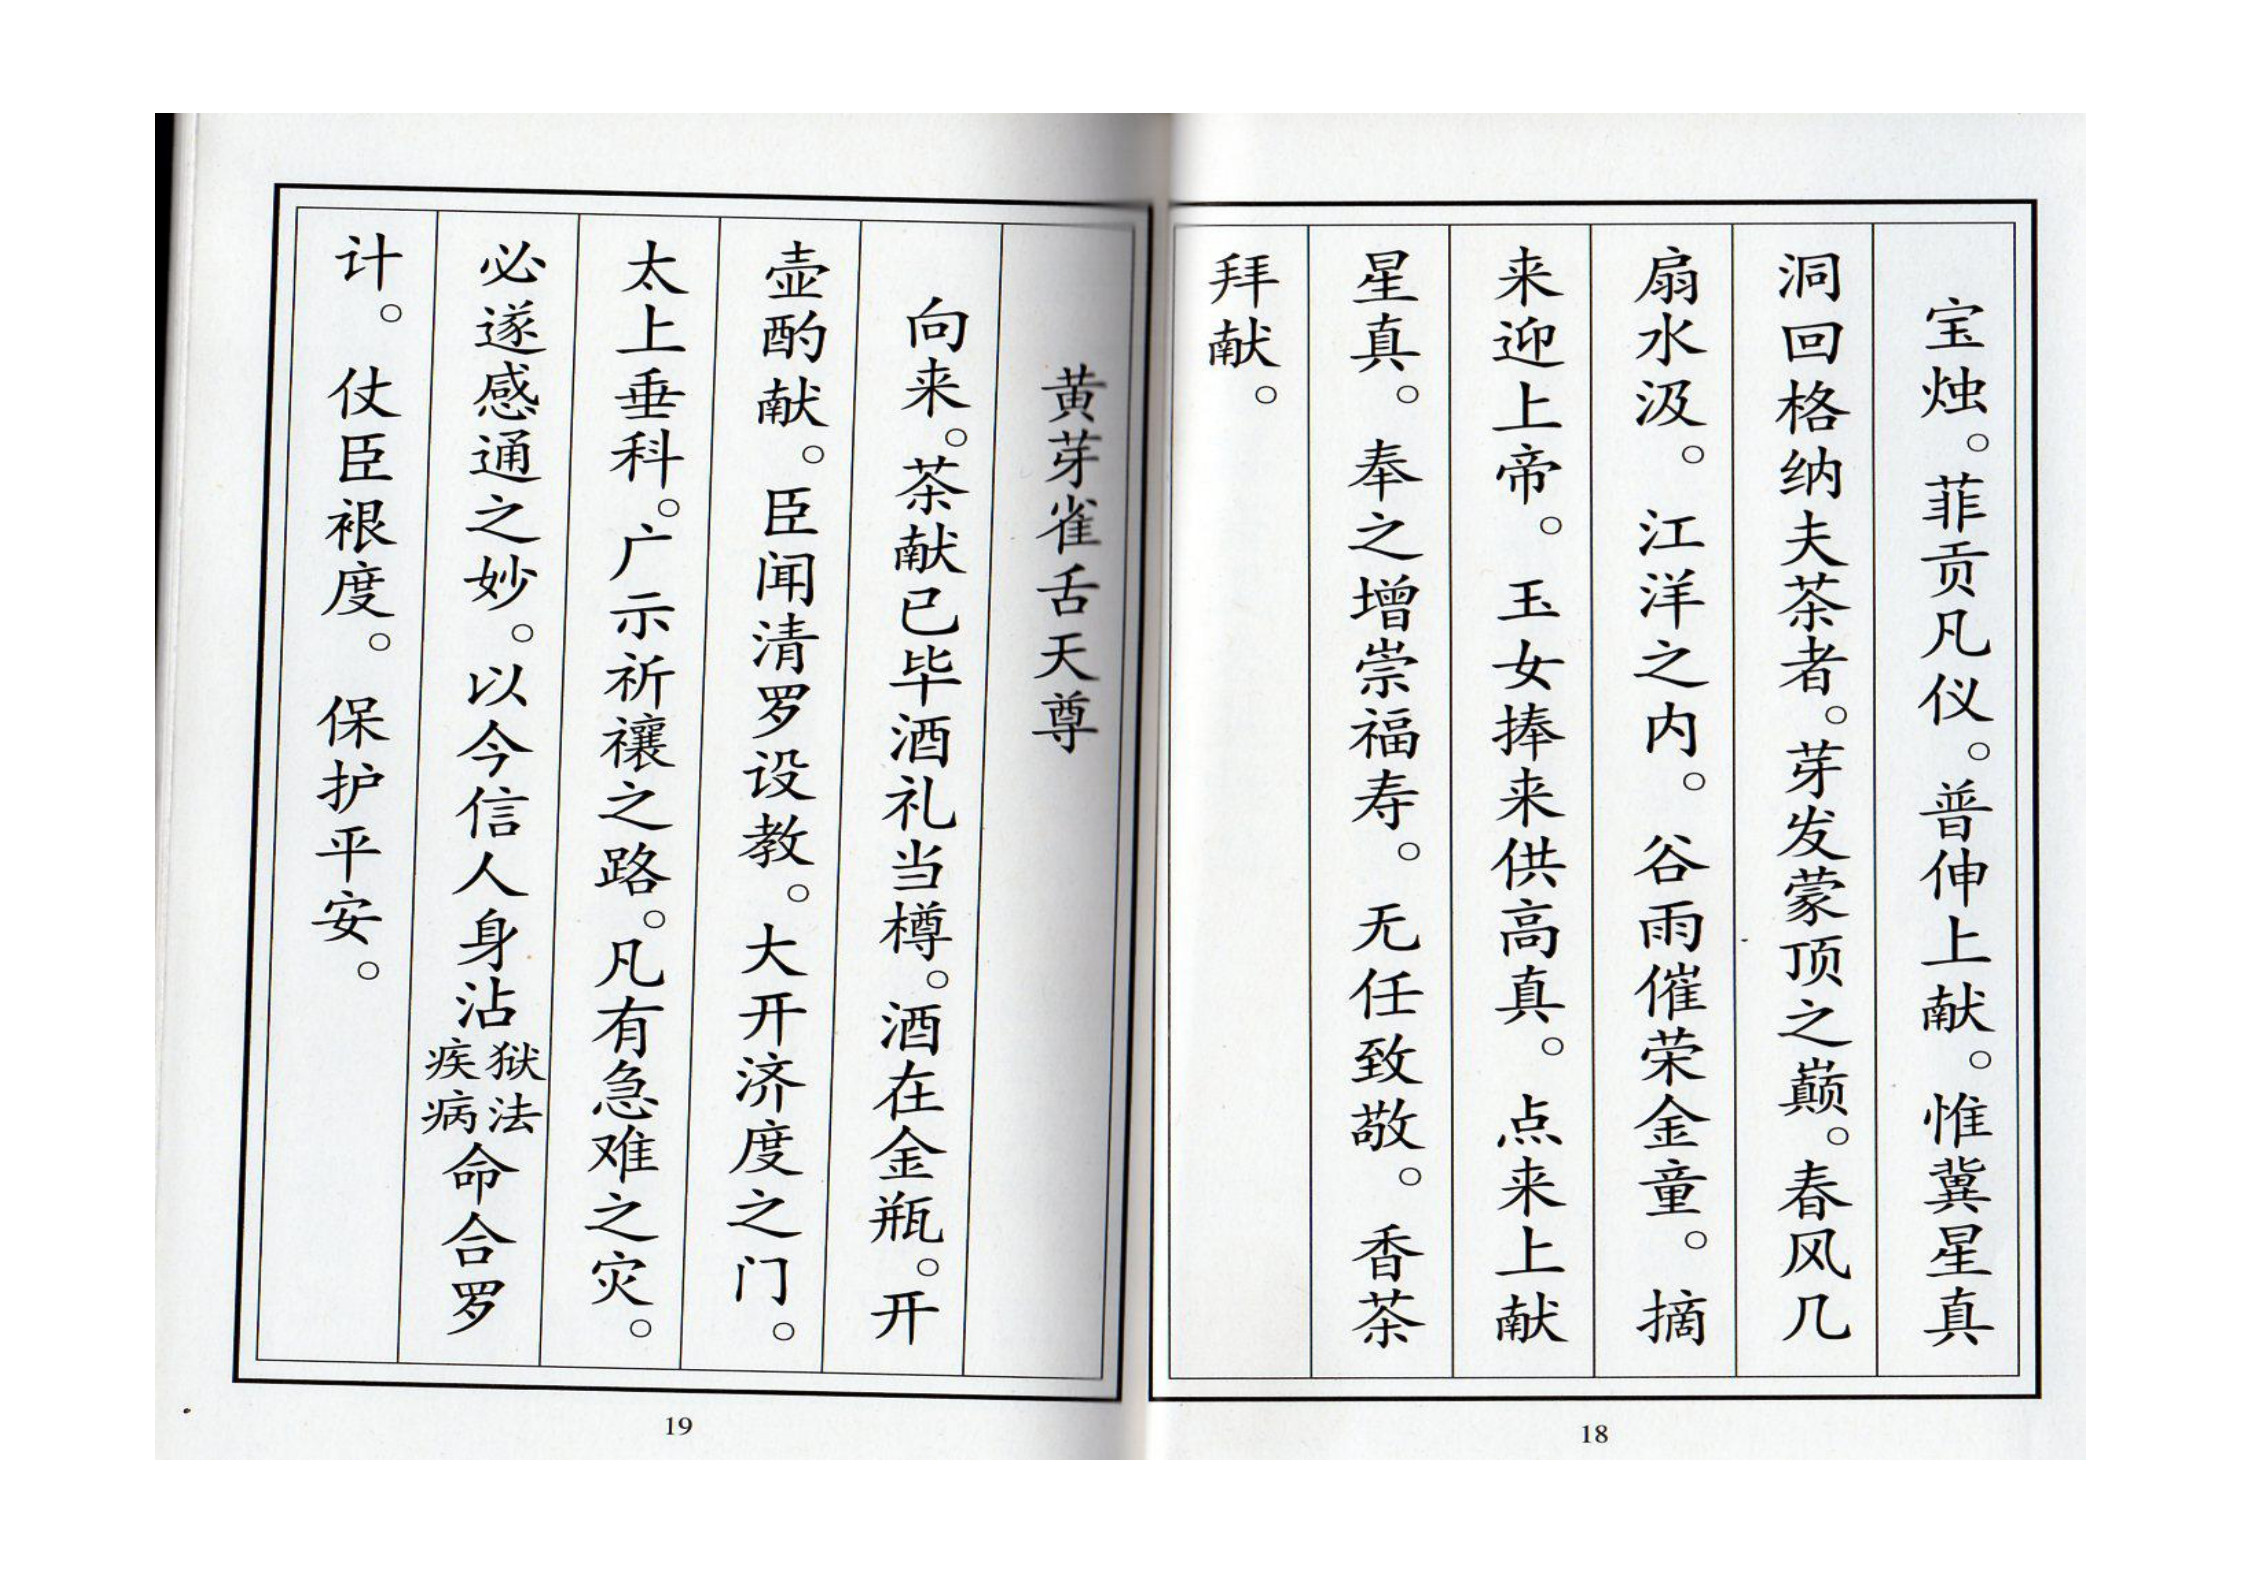 宝烛。菲贡凡仪。普伸上献。惟冀星真
洞回格纳夫茶者。芽发蒙顶之巅。春风几
扇水汲。江洋之内。谷雨催荣金童。摘
来迎上帝。玉女捧来供高真。点来上献
星真。奉之增崇福寿。无任致敬。香茶
拜献。
18
黄芽雀舌天尊
向来。茶献已毕酒礼当樽。酒在金瓶。开
壶酌献。臣闻清罗设教。大开济度之门。
太上垂科。广示祈禳之路。凡有急难之灾。
必遂感通之妙。以今信人身沾狱法疾病命合罗
计。仗臣裉度。保护平安。
19